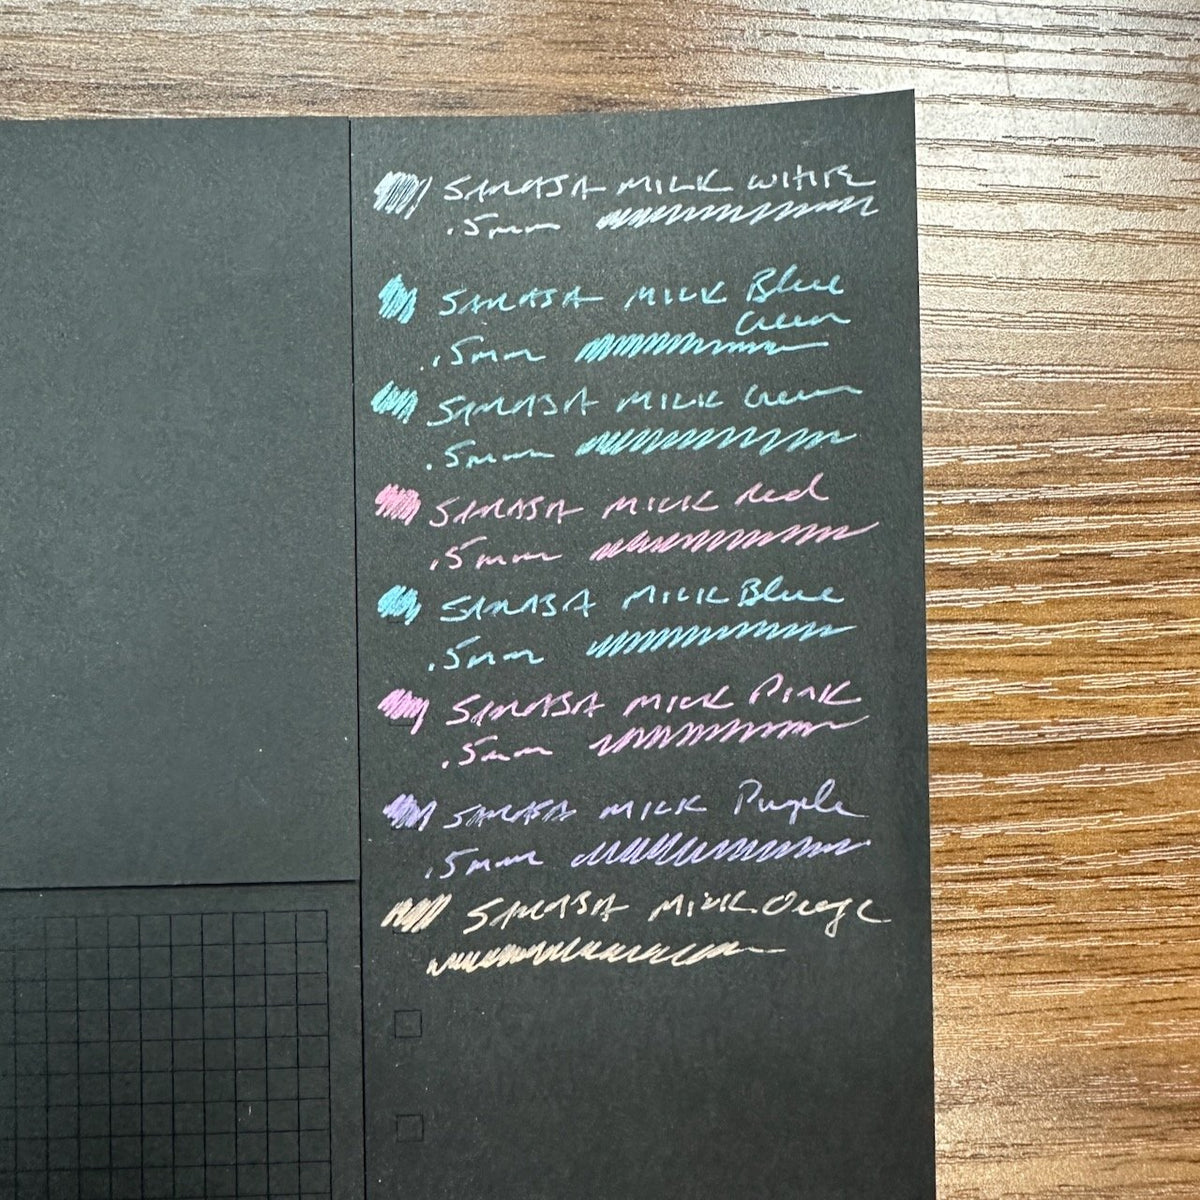 SARASA MILK WHITE
.5mm
SARASA MILK Blue
Green
.5mm
SARASA MILK Green
.5mm
SARASA MILK Red
.5mm
SARASA MILK Blue
.5mm
SARASA MILK Pink
.5mm
SARASA MILK Purple
.5mm
SARASA MILK Orange